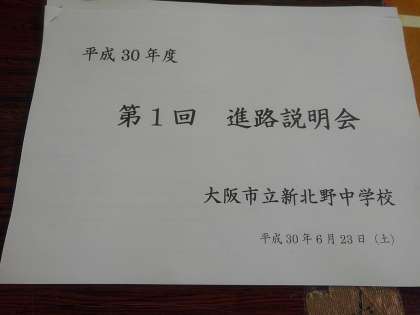 平成 30 年度
第１回　進路説明会
大阪市立新北野中学校
平成 30 年 6 月 23 日（土）